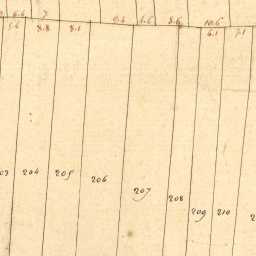 6.6 7 9.6 6.6 8.6 10.6
5.6 8.8 8.1 6.1 7.1
03 204 205 206 207 208 209 210 2